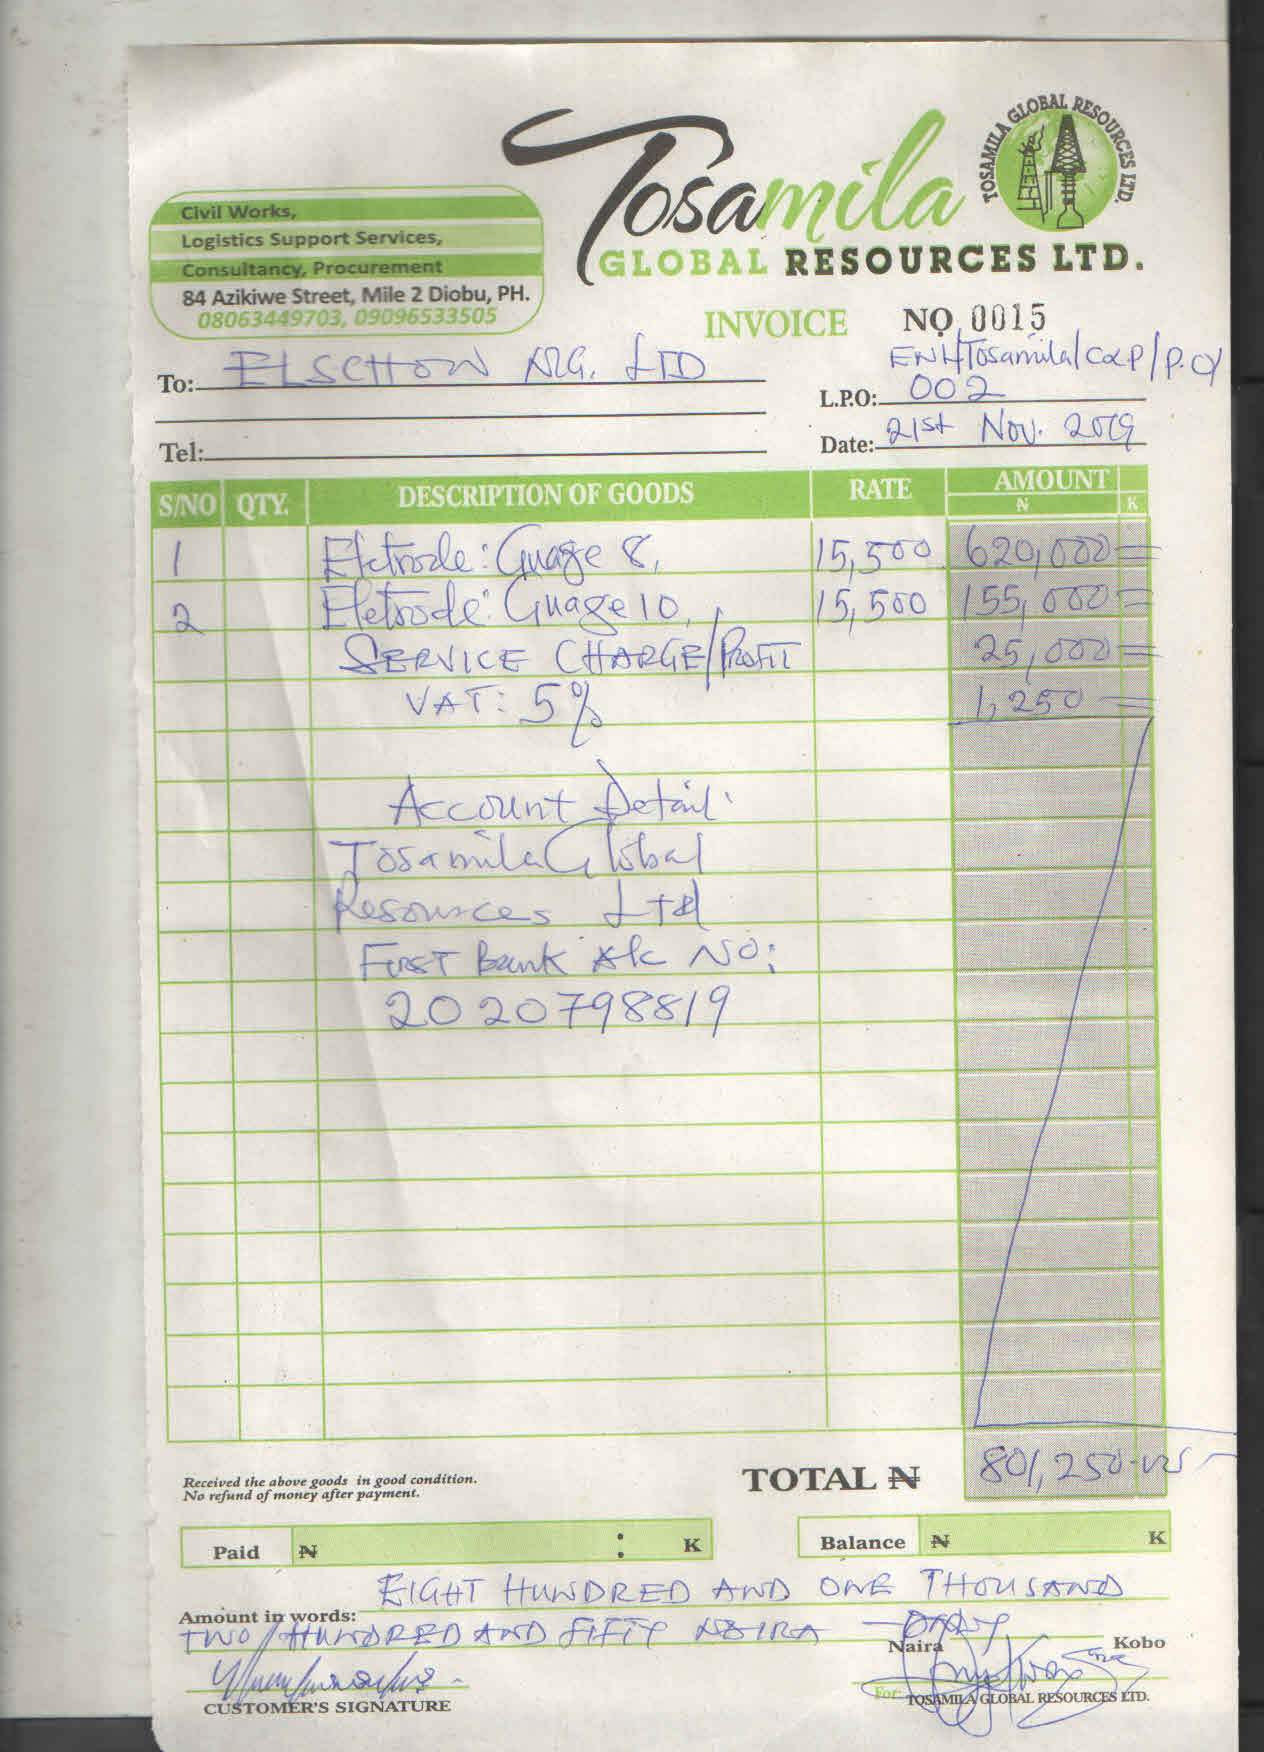 Tosamila
GLOBAL RESOURCES LTD.
TOSAMILA GLOBAL RESOURCES LTD.
Civil Works,
Logistics Support Services,
Consultancy, Procurement
84 Azikiwe Street, Mile 2 Diobu, PH.
08063449703, 09096533505
INVOICE NO 0015
To: ELSCHON NIG. LTD
ENH/Tosamila/C&P/P.O/
L.P.O: 002
Tel:
Date: 21st Nov. 2019
S/NO QTY. DESCRIPTION OF GOODS RATE AMOUNT
₦ K
1 Eletrode: Guage 8, 15,500 620,000 =
2 Eletrode: Guage 10, 15,500 155,000 =
SERVICE CHARGE/PROFIT 25,000 =
VAT: 5% 1,250 =
Account Detail:
Tosamila Global
Resources Ltd
First Bank A/c NO:
2020798819
Received the above goods in good condition.
No refund of money after payment.
TOTAL ₦ 801,250
Paid ₦ : K Balance ₦ K
EIGHT HUNDRED AND ONE THOUSAND
Amount in words:
TWO HUNDRED AND FIFTY NAIRA ONLY
Naira Kobo
CUSTOMER'S SIGNATURE
For: TOSAMILA GLOBAL RESOURCES LTD.